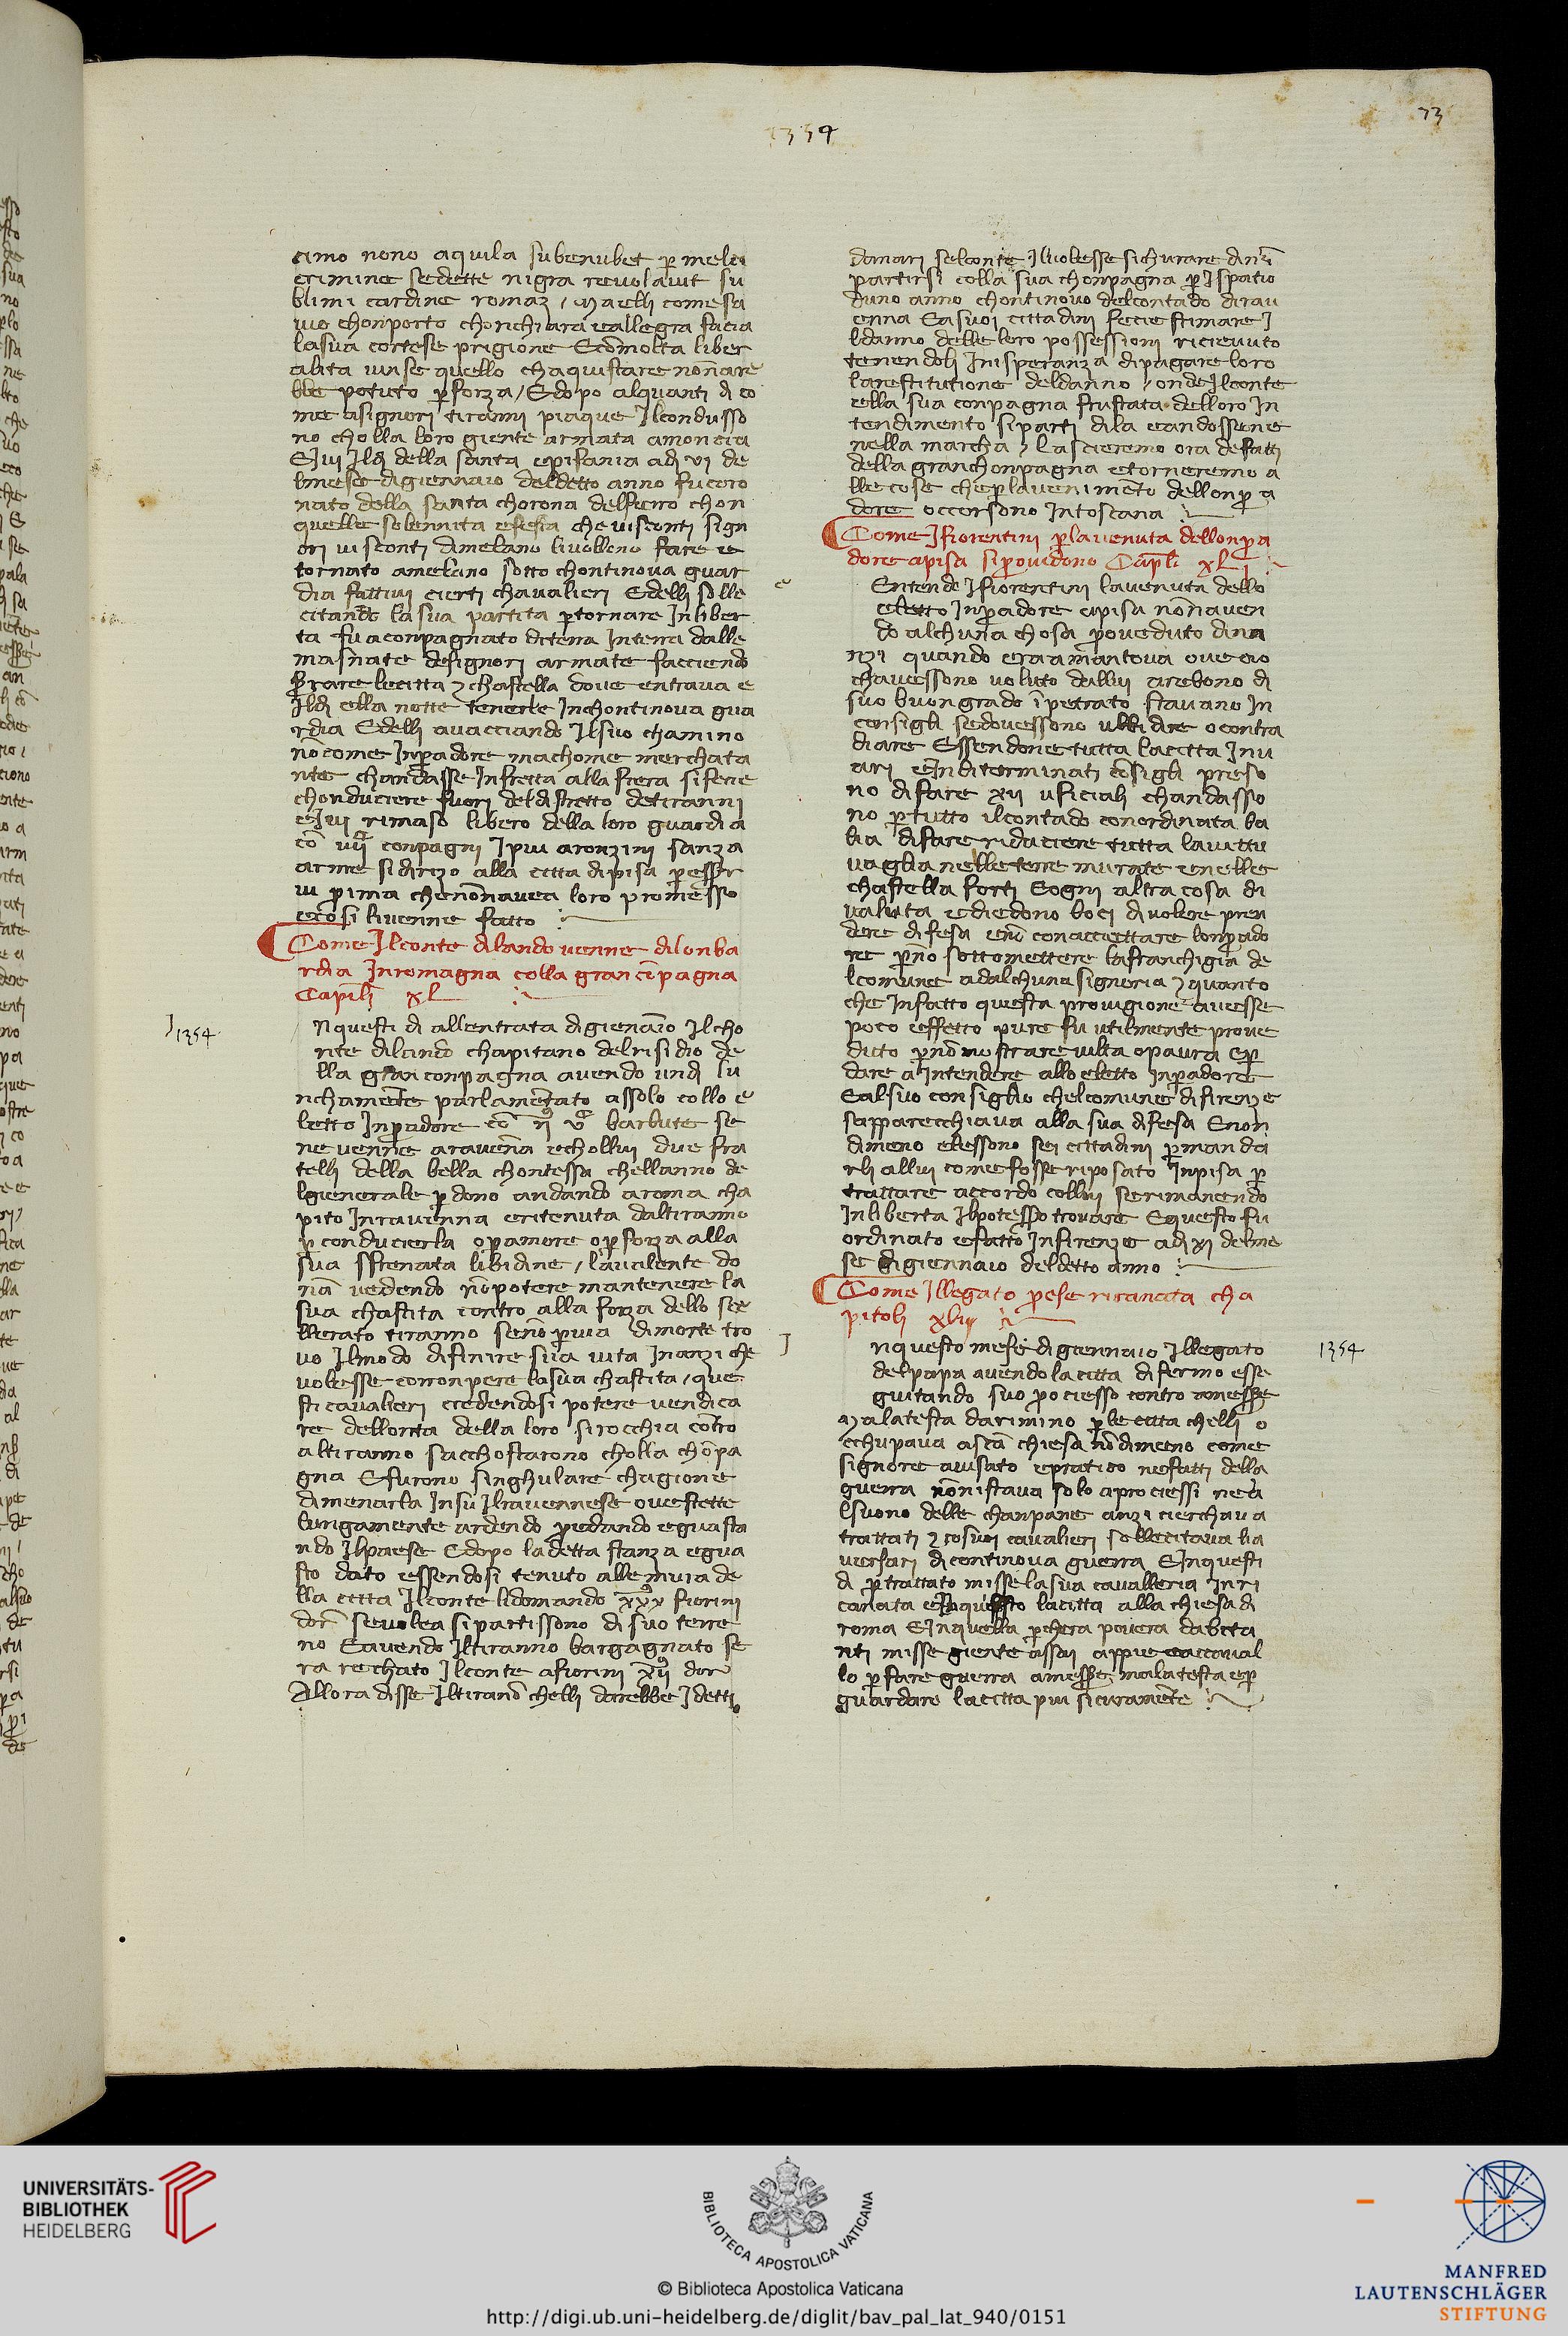 1354
73
cimo nono aquila subenubet p mela
crimine sedette nigra revolavit su
blimi cardine romaz / Maelli comesa
vio chonporto chonchiara eallegra facia
lasua cortese prigione Ecomolta liber
alita vinse quello chaquistare nonare
bbe potuto pforza / Edopo alquanti di co
me asignori tiranni piaque Ilcondusso
no cholla loro giente armata amoncia
Eivi Ildi della santa epifania adi vi de
lmese digiennaio deldetto anno fucoro
nato della santa chorona delferro chon
quelle solennita efesta che visconti sign
ori visconti dimelano livollono fare e
tornato amelano sotto chontinova guar
dia fattivi cierti chavalieri Edelli solle
citando lasua partita ptornare Inliber
ta fu aconpagnato diterra Interra dalle
masnate designori armate facciendo
serrare lecitta 7 chastella dove entrava e
Ildi ella notte tenerle Inchontinova gua
rdia Edelli avacciando Ilsuo chamino
nocome Inpadore machome merchata
nte chandasse Infretta alla fiera sifecie
chonduciere fuori deldistretto detiranni
eivi rimaso libero della loro guardia
arme sidirizo alla citta dipisa p esser
vi pima chenonavea loro promesso
ecosi livenne fatto
Come Ilconte dilando venne dilonba
rdia Inromagna colla grancopagna
Capitoli xL
1354
Nquesti di allentrata digienaio Ilcho
nte dilando chapitano delrisidio de
lla gran conpagna avendo
nchamente parlamentato assolo collo e
letto Inpadore barbute se
nevenne aravenna echollui due fra
telli della bella chontessa chellanno de
lgienerale pdono andando aroma cha
pito Inravenna eritenuta daltiranno
p conducierla opamore opforza alla
sua sfrenata libidine / lavalente do
na vedendo nopotere mantenere la
sua chastita contro alla forza dello sce
llerato tiranno seno pvia dimorte tro
vo Ilmodo difinire sua vita Inanzi che
volesse corronpere lasua chastita / que
sti cavalieri credendosi potere vendica
re dellonta della loro sirocchia contro
altiranno sacchostarono cholla chopa
gna Efurono singhulare chagione
dimenarla Insu Ilravennese ovestette
lungamente ardendo pedando eguasta
ndo Ilpaese Edopo ladetta stanza egua
sto dato essendosi tenuto allemura de
lla citta Ilconte lidomando xxx fiorini
doro sevolea sipartissono di suo terre
no Eavendo Iltiranno bargagnato se
ra rechato Ilconte afiorini xii dor
Allora disse Iltirano chelli darebbe I detti
danari selconte Ilvolesse sichurare dino
partirsi colla sua chonpagna p Ispatio
duno anno chontinovo delcontado dirav
enna Easuoi cittadini fecie stimare I
ldanno delle loro possessioni ricievuto
tenendoli Inisperanza dipagare loro
larestitutione deldanno / ondeIlconte
ella sua conpagna frustata delloro In
tendimento siparti dila eandossene
nella marcha / Lascieremo ora defatti
della granchonpagna etorneremo a
lle cose che plavenimento dellonpa
dore occorsono Intoscana
Come Ifiorentini plavenuta dellonpa
dore apisa sipovidono Capitoli xLI
e
Entende Ifiorentini lavenuta dello
eletto Inpadore apisa nonaven
do alchuna chosa proveduto dina
nzi quando era amantova ove cio
chavessono voluto dallui arebono di
suo buongrado ipetrato stavano In
consigli sedovessono ubbidire ocontra
diare Essendone tutta lacitta Inv
ari eInditerminati cosigli preso
no difare xii uficiali chandasso
no ptutto ilcontado conordinata ba
lia difare riduciere tutta lavittu
vaglia nelleterre murate enelle
chastella forti Eogni altra cosa di
valuta ediedono boci divolere pren
dere difesa eno conacciettare lonpado
re pno sottomettere lafranchigia de
lcomune adalchuna signoria 7 quanto
che Infatto questa provigione avesse
poco effetto pure fu utilmente prove
duto pno mostrare vilta opaura ep
dare aIntendere allo eletto Inpadore
Ealsuo consiglio chelcomune difirenze
sapparecchiava alla sua difesa Enon
dimeno elessono sei cittadini pmanda
rli allui come fosse riposato Inpisa p
trattare accordo collui serimanendo
Inliberta Ilpotesso trovare Equesto fu
ordinato efatto Infirenze adi xi delme
se digiennaio deldetto anno
Come Illegato pese ricanata cha
pitoli xlii
I
Nquesto mese digiennaio Illegato
delpapa avendo lacitta difermo esse
guitando suo pociesso contro amesser
Malatesta darimino ple citta chelli o
cchupava asca chiesa nodimeno come
signore avisato epratico nefatti della
guerra nonistava solo aprociessi nea
lsuono delle chanpane anzi cierchava
trattati 7 cosuoi cavalieri sollecitava lia
versari di continova guerra EInquesti
di ptrattato misse lasua cavalleria Inri
canata eInquesto lacitta alla chiesa di
roma EInquella pchera povera dabita
nti misse giente assai appie eaccaval
lo pfare guerra amesser malatesta ep
guardare lacitta piu sicuramente
1354
UNIVERSITÄTS-
BIBLIOTHEK
HEIDELBERG
BIBLIOTECA APOSTOLICA VATICANA
© Biblioteca Apostolica Vaticana
http://digi.ub.uni-heidelberg.de/diglit/bav_pal_lat_940/0151
MANFRED
LAUTENSCHLÄGER
STIFTUNG